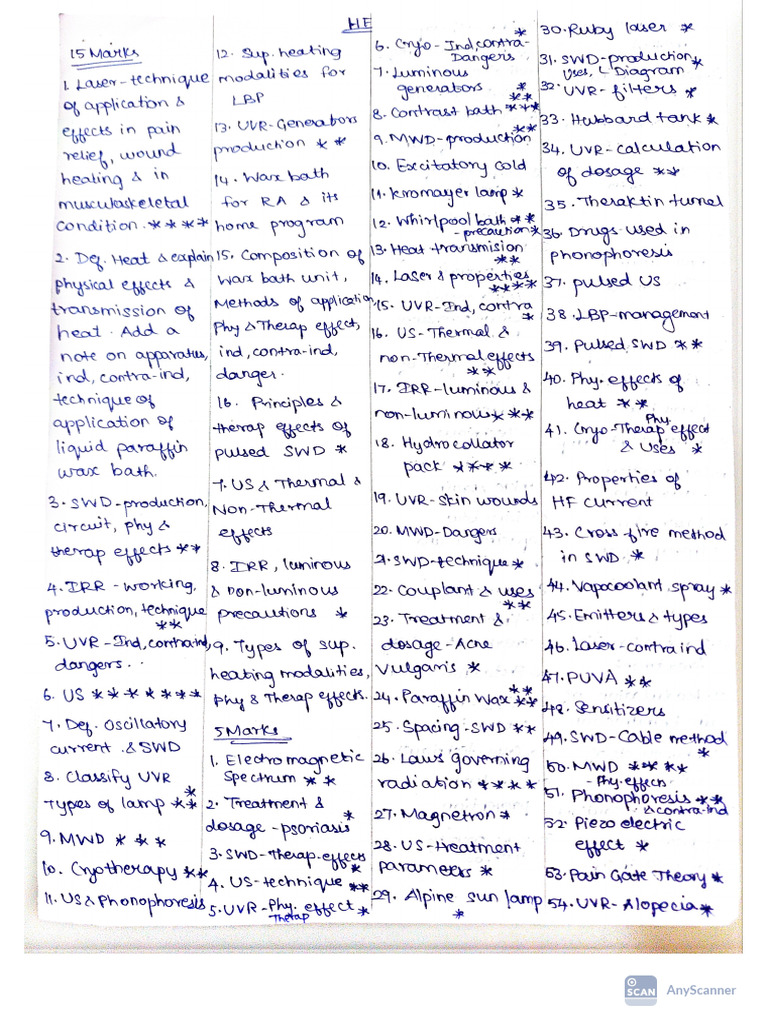 HE
15 Marks
1. Laser-technique
of application &
effects in pain
relief, wound
healing & in
musculoskeletal
condition. ****
2. Def. Heat & explain
physical effects &
transmission of
heat. Add a
note on apparatus,
ind, contra-ind,
technique of
application of
liquid paraffin
wax bath.
3. SWD-production,
circuit, phy &
therap effects **
4. IRR - working,
production, technique
**
5. UVR-Ind, contra ind,
dangers..
6. US *******
7. Def. Oscillatory
current & SWD
8. Classify UVR
Types of lamp ***
9. MWD ***
10. Cryotherapy **
11. US & Phonophoresis
12. Sup. heating
modalities for
LBP
13. UVR-Generators
production **
14. Wax bath
for RA & its
home program
15. Composition of
Wax bath unit,
Methods of application,
Phy & Therap effect,
ind, contra-ind,
danger.
16. Principles &
therap effects of
pulsed SWD *
7. US & Thermal &
Non-Thermal
effects
8. IRR, luminous
& non-luminous
precautions *
9. Types of sup.
heating modalities,
phy & Therap effects.
5 Marks
1. Electromagnetic
Spectrum **
2. Treatment &
dosage-psoriasis *
3. SWD-Therap. effects
*
4. US-technique **
5. UVR-Phy. effect *
Therap
6. Cryo-Ind, contra- *
Dangers
7. Luminous
generators *
8. Contrast bath *****
9. MWD-production **
10. Excitatory cold
11. Kromayer lamp *
12. Whirlpool bath **
-precaution *
13. Heat transmision
**
14. Laser & properties
****
15. UVR-Ind, contra *
16. US-Thermal &
non-Thermal effects
**
17. IRR-luminous &
non-luminous ***
18. Hydrocollator
pack ****
19. UVR-Skin wounds
20. MWD-Dangers
21. SWD-technique *
22. Couplant & uses
**
23. Treatment &
dosage-Acne
Vulgaris *
24. Paraffin Wax ****
25. Spacing-SWD **
26. Laws governing
radiation ****
27. Magnetron *
28. US-treatment
parameters *
29. Alpine sun lamp
*
30. Ruby laser *
31. SWD-production *
Uses, L Diagram
32. UVR-filters *
33. Hubbard tank *
34. UVR-calculation
of dosage **
35. Theraktin tunnel
36. Drugs used in
phonophoresis
37. pulsed US
38. LBP-management
39. Pulsed SWD **
40. Phy. effects of
heat **
41. Cryo-Therap effect
Phy,
& Uses *
42. Properties of
HF current
43. Cross fire method
in SWD *
44. Vapocoolant spray *
45. Emitters & types
46. Laser-contra ind
47. PUVA **
48. Sensitizers
49. SWD-Cable method
*
50. MWD ****
-Phy. effects
51. Phonophoresis **
& contra-ind
52. Piezo electric
effect *
53. Pain Gate Theory *
54. UVR-Alopecia *
SCAN AnyScanner